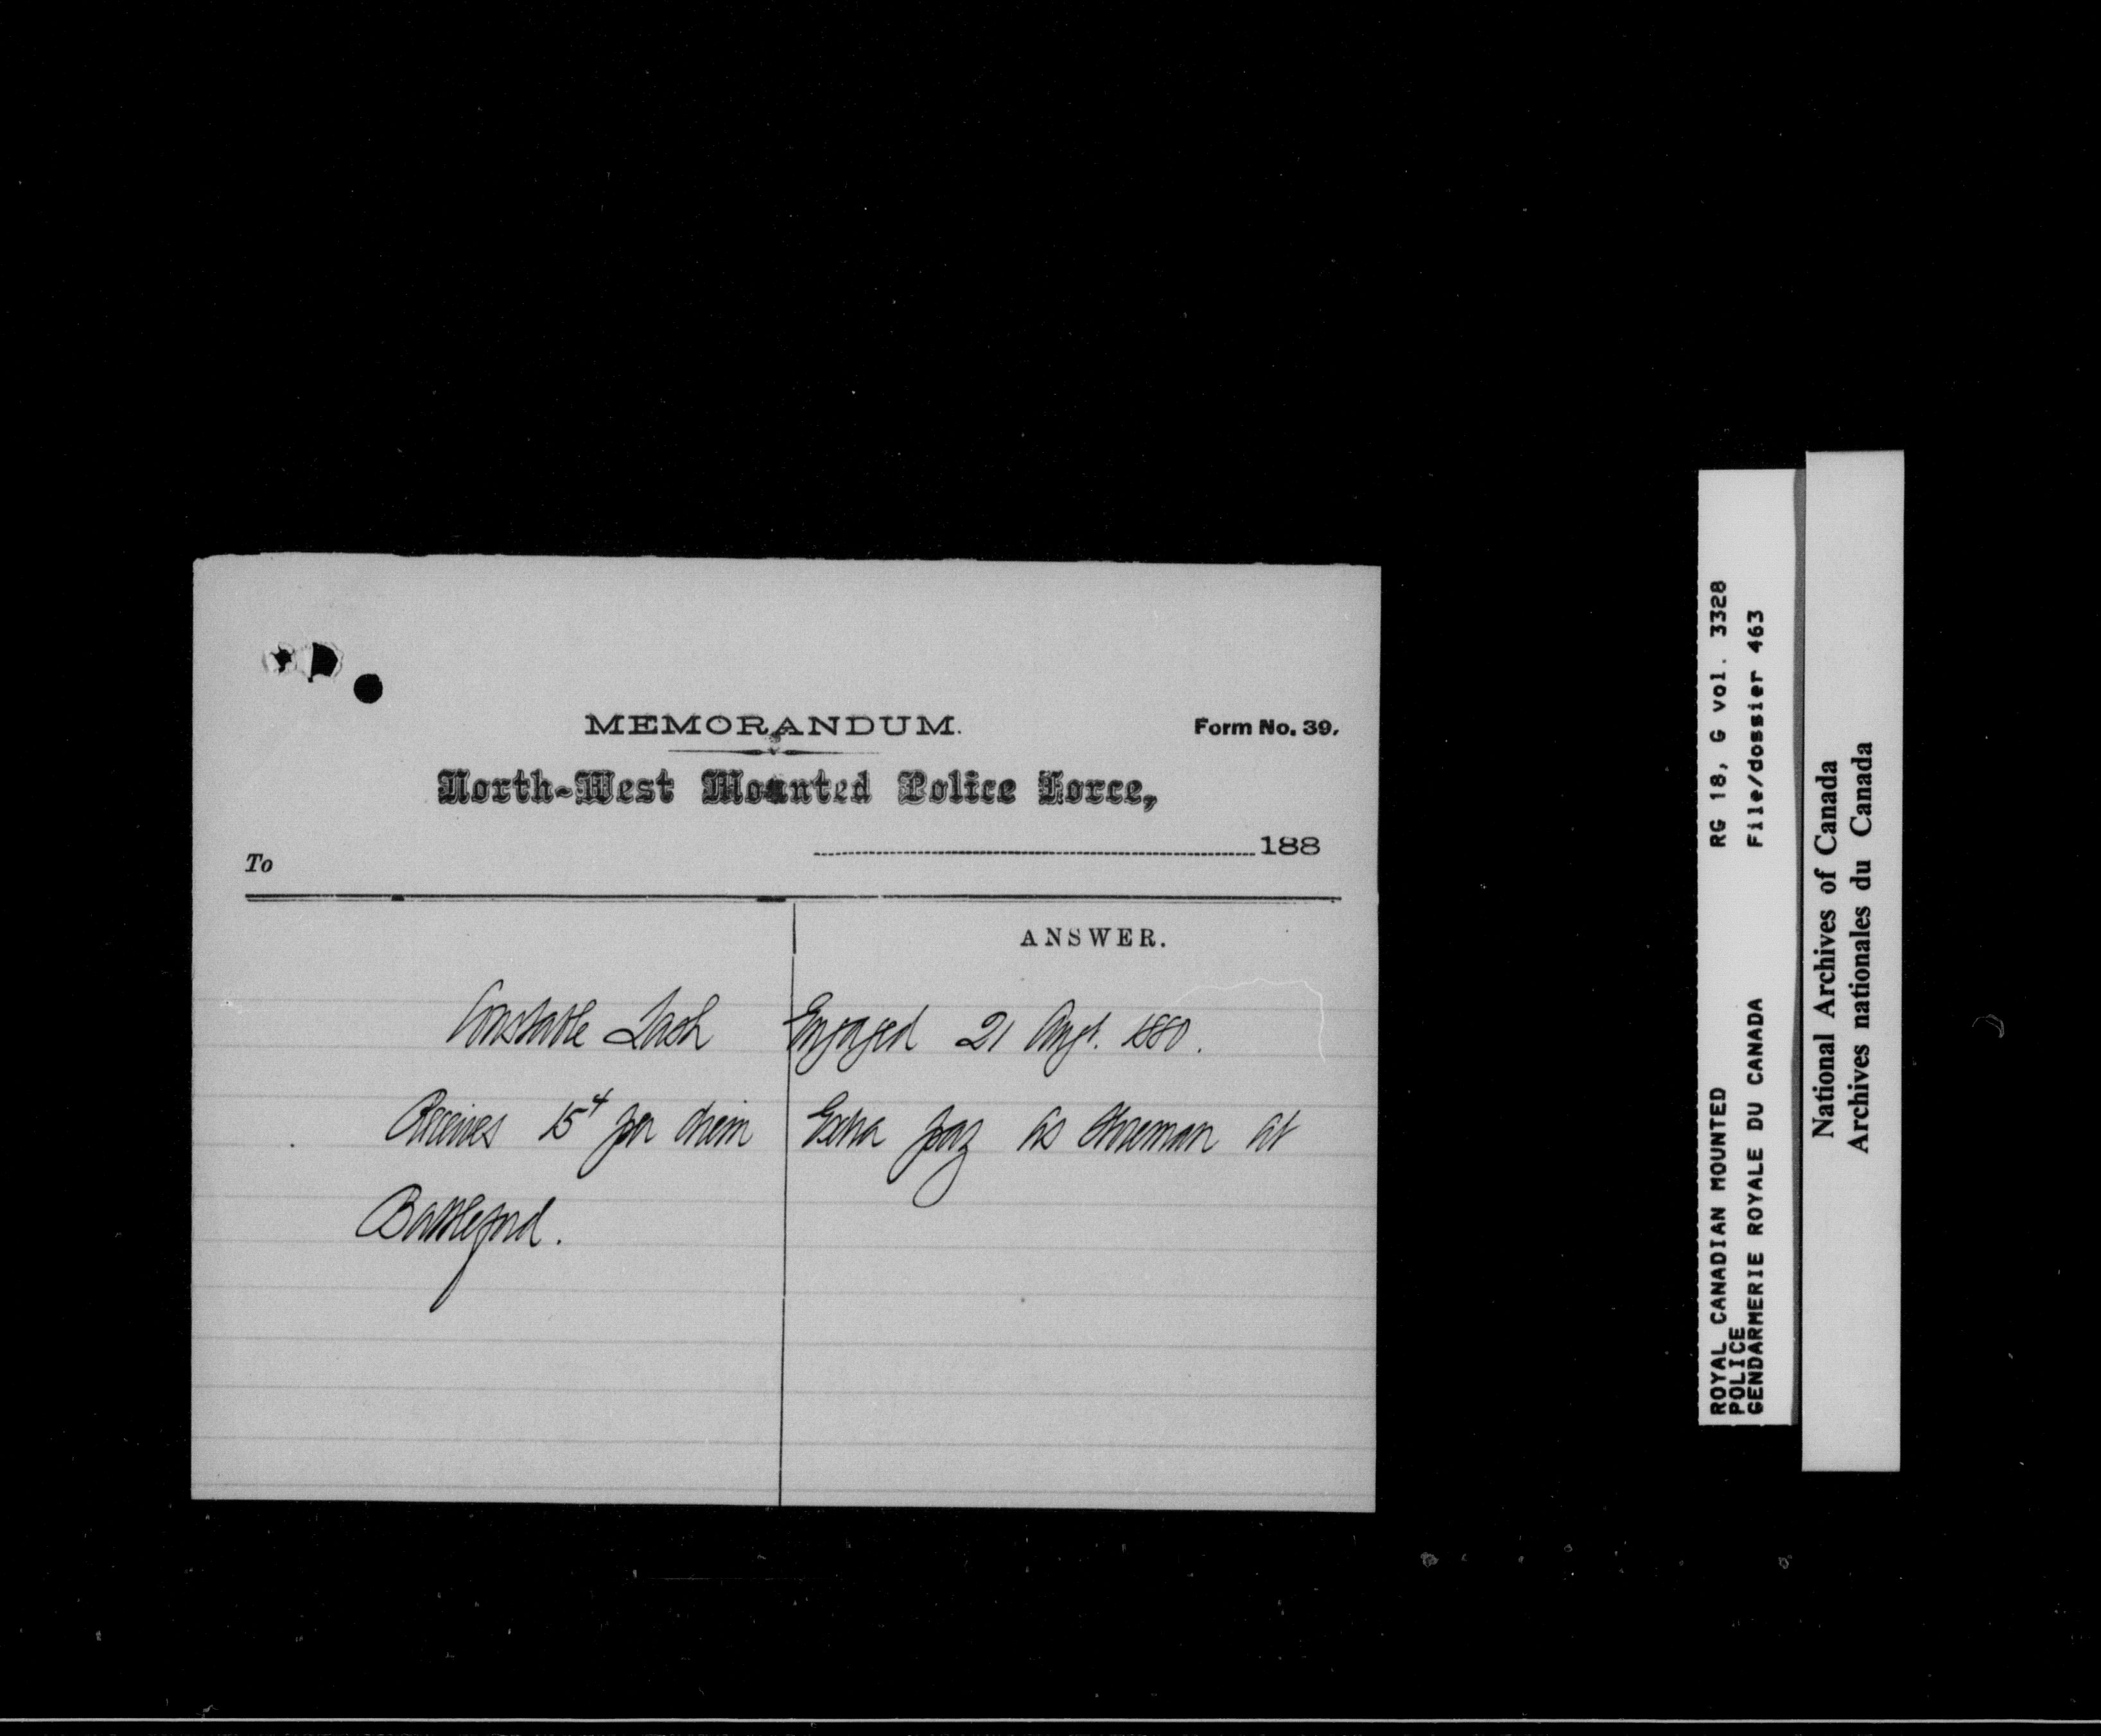 MEMORANDUM.
Form No. 39.
North-West Mounted Police Force,
188
To
ANSWER.
Constable Lash Engaged 21 Augt. 1880.
Receives 15¢ per diem Extra pay as Storeman at
Battleford.
ROYAL CANADIAN MOUNTED RG 18, G vol. 3328
POLICE
GENDARMERIE ROYALE DU CANADA File/dossier 463
National Archives of Canada
Archives nationales du Canada